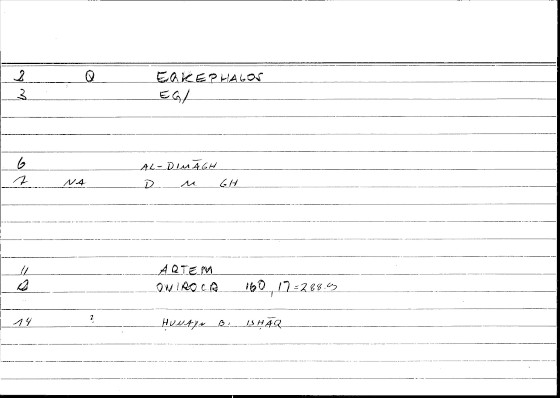 2 Q EGKEPHALOS
3 EG/
6 AL-DIMĀGH
7 NA D M GH
11 ARTEM
12 ONIROCR 160,17=288.5
14 ? ḤUNAYN B. ISḤĀQ